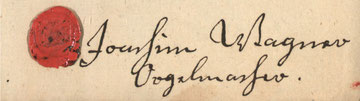 Joachim Wagner
Orgelmacher.